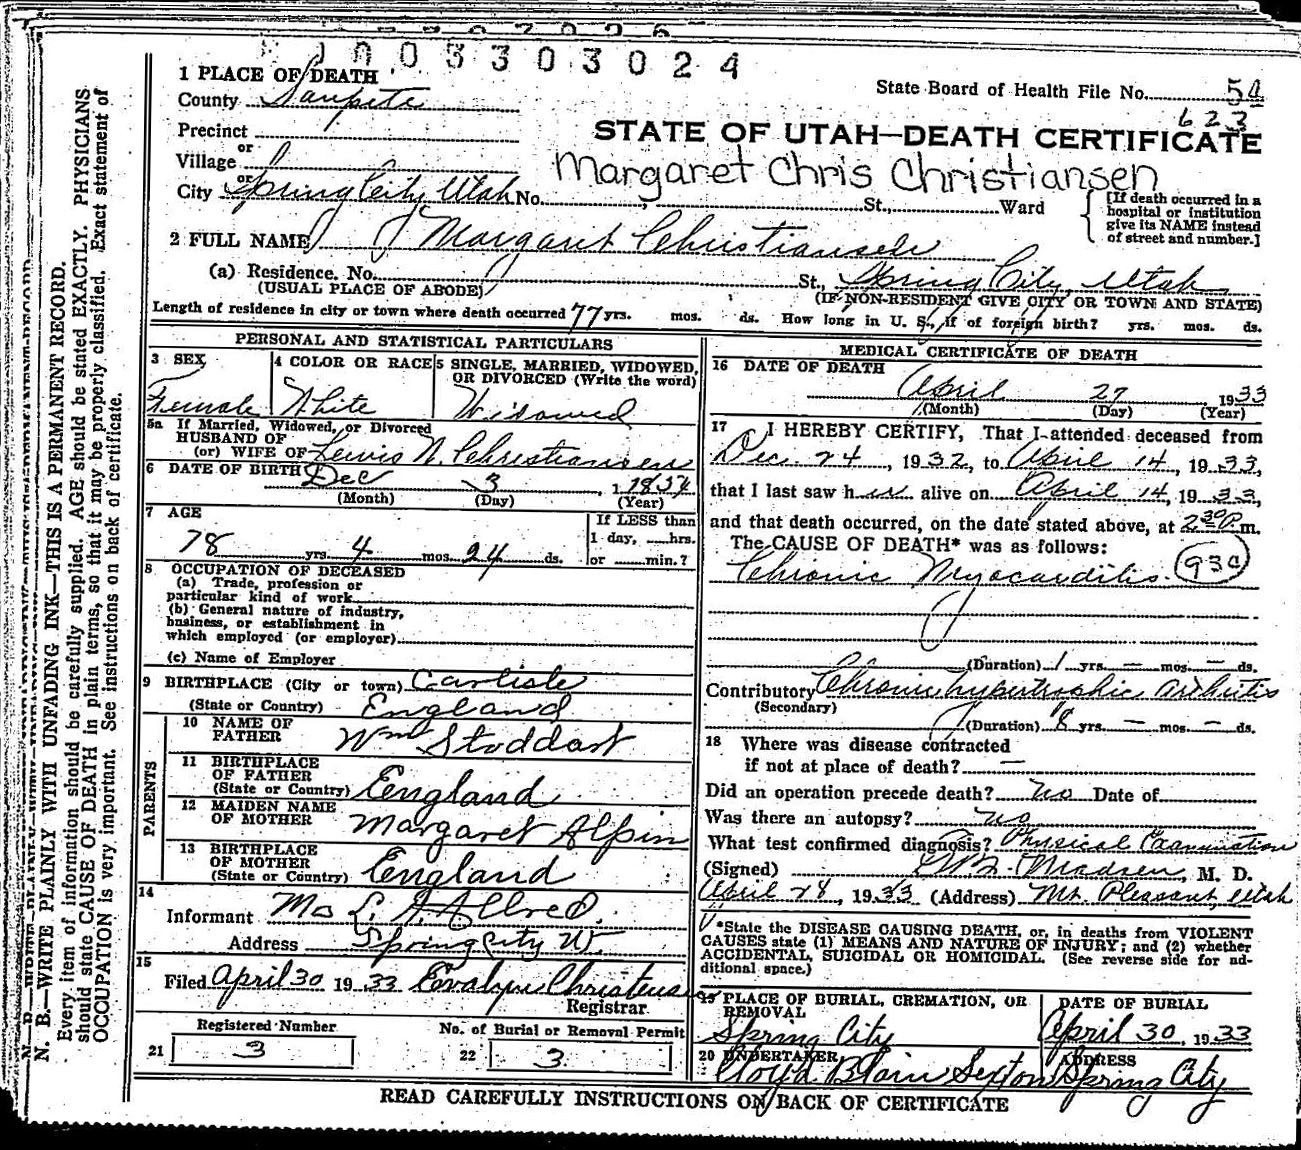 0 0 3 3 0 3 0 2 4
1 PLACE OF DEATH
County Sanpete
State Board of Health File No. 54
623
Precinct
or
Village
or
City Spring City, Utah No. St., Ward
STATE OF UTAH—DEATH CERTIFICATE
Margaret Chris Christiansen
[If death occurred in a
hospital or institution
give its NAME instead
of street and number.]
2 FULL NAME Margaret Christiansen
(a) Residence. No. St., Spring City, Utah
(USUAL PLACE OF ABODE) (IF NON-RESIDENT GIVE CITY OR TOWN AND STATE)
Length of residence in city or town where death occurred 77 yrs. mos. ds. How long in U. S., if of foreign birth? yrs. mos. ds.
PERSONAL AND STATISTICAL PARTICULARS
3 SEX
Female
4 COLOR OR RACE
White
5 SINGLE, MARRIED, WIDOWED,
OR DIVORCED (Write the word)
Widowed
5a If Married, Widowed, or Divorced
HUSBAND OF
(or) WIFE OF Lewis N. Christiansen
6 DATE OF BIRTH Dec 3 1854
(Month) (Day) (Year)
7 AGE
78 yrs. 4 mos. 24 ds.
If LESS than
1 day, hrs.
or min.?
8 OCCUPATION OF DECEASED
(a) Trade, profession or
particular kind of work
(b) General nature of industry,
business, or establishment in
which employed (or employer)
(c) Name of Employer
9 BIRTHPLACE (City or town) Carlisle
(State or Country) England
PARENTS
10 NAME OF
FATHER Wm Stoddart
11 BIRTHPLACE
OF FATHER
(State or Country) England
12 MAIDEN NAME
OF MOTHER Margaret Alpin
13 BIRTHPLACE
OF MOTHER
(State or Country) England
14
Informant Mrs L. A. Allred.
Address Spring City U.
15
Filed April 30 1933 Evalyn Christensen
Registrar
Registered Number
21 3
No. of Burial or Removal Permit
22 3
MEDICAL CERTIFICATE OF DEATH
16 DATE OF DEATH
April 27 1933
(Month) (Day) (Year)
17 I HEREBY CERTIFY, That I attended deceased from
Dec. 24, 1932, to April 14, 1933,
that I last saw her alive on April 14, 1933,
and that death occurred, on the date stated above, at 2 30 P. m.
The CAUSE OF DEATH* was as follows:
Chronic Myocarditis. 93c
(Duration) 1 yrs. — mos. — ds.
Contributory Chronic hypertrophic arthritis
(Secondary)
(Duration) 8 yrs. — mos. — ds.
18 Where was disease contracted
if not at place of death? —
Did an operation precede death? No Date of
Was there an autopsy? No
What test confirmed diagnosis? Physical Examination
(Signed) Madsen, M. D.
April 28, 1933 (Address) Mt. Pleasant, Utah
*State the DISEASE CAUSING DEATH, or, in deaths from VIOLENT
CAUSES state (1) MEANS AND NATURE OF INJURY; and (2) whether
ACCIDENTAL, SUICIDAL OR HOMICIDAL. (See reverse side for ad-
ditional space.)
19 PLACE OF BURIAL, CREMATION, OR
REMOVAL
Spring City
DATE OF BURIAL
April 30, 1933
20 UNDERTAKER
Lloyd Blain Sexton
ADDRESS
Spring City
READ CAREFULLY INSTRUCTIONS ON BACK OF CERTIFICATE
N. B.—WRITE PLAINLY WITH UNFADING INK—THIS IS A PERMANENT RECORD.
Every item of information should be carefully supplied. AGE should be stated EXACTLY. PHYSICIANS
should state CAUSE OF DEATH in plain terms, so that it may be properly classified. Exact statement of
OCCUPATION is very important. See instructions on back of certificate.